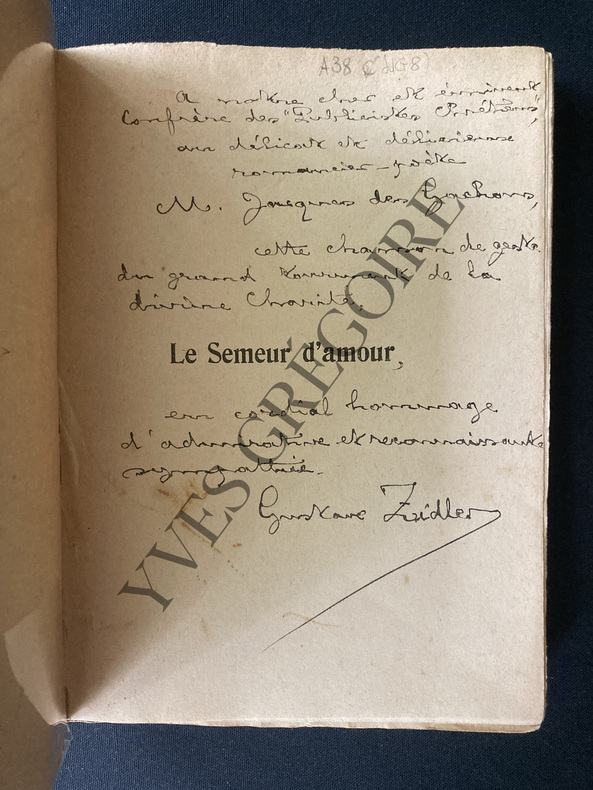 A38
A notre cher et éminent
Confrère des "Publicistes Chrétiens",
au délicat et délicieux
romancier-poète
M. Jacques des Gachons,
cette chanson de geste
du grand tourment de la
divine Charité.
Le Semeur d'amour,
en cordial hommage
d'admirative et reconnaissante
sympathie.
Gustave Zidler
YVES GRÉGOIRE